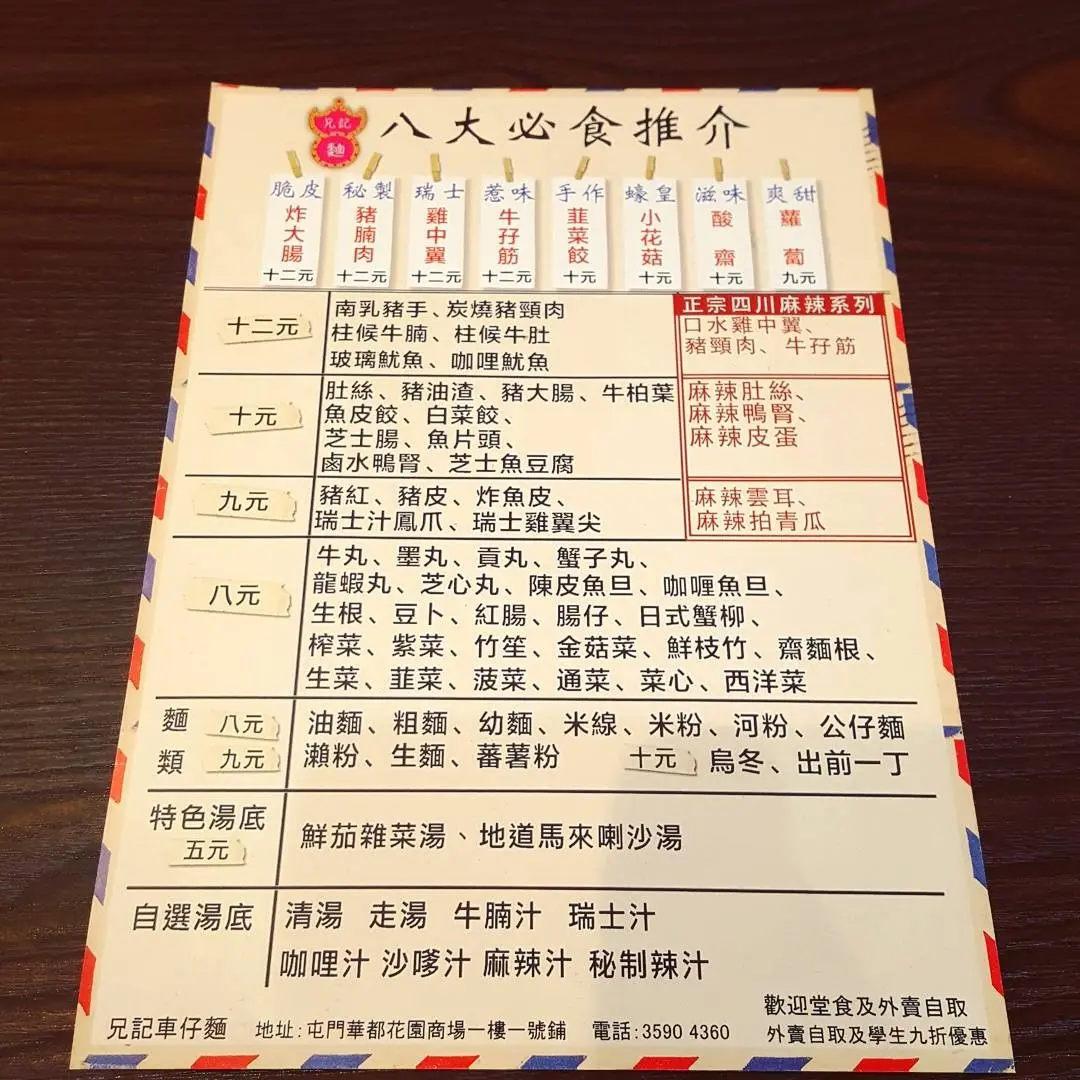 兄記
麵
八大必食推介
脆皮
炸大腸
十二元
秘製
豬腩肉
十二元
瑞士
雞中翼
十二元
惹味
牛孖筋
十二元
手作
韮菜餃
十元
蠔皇
小花菇
十元
滋味
酸齋
十元
爽甜
蘿蔔
九元
十二元
南乳豬手、炭燒豬頸肉
柱候牛腩、柱候牛肚
玻璃魷魚、咖哩魷魚
正宗四川麻辣系列
口水雞中翼、
豬頸肉、牛孖筋
十元
肚絲、豬油渣、豬大腸、牛柏葉
魚皮餃、白菜餃、
芝士腸、魚片頭、
鹵水鴨腎、芝士魚豆腐
麻辣肚絲、
麻辣鴨腎、
麻辣皮蛋
九元
豬紅、豬皮、炸魚皮、
瑞士汁鳳爪、瑞士雞翼尖
麻辣雲耳、
麻辣拍青瓜
八元
牛丸、墨丸、貢丸、蟹子丸、
龍蝦丸、芝心丸、陳皮魚旦、咖喱魚旦、
生根、豆卜、紅腸、腸仔、日式蟹柳、
榨菜、紫菜、竹笙、金菇菜、鮮枝竹、齋麵根、
生菜、韮菜、菠菜、通菜、菜心、西洋菜
麵類
八元 油麵、粗麵、幼麵、米線、米粉、河粉、公仔麵
九元 瀨粉、生麵、蕃薯粉 十元 烏冬、出前一丁
特色湯底
五元
鮮茄雜菜湯、地道馬來喇沙湯
自選湯底
清湯 走湯 牛腩汁 瑞士汁
咖哩汁 沙嗲汁 麻辣汁 秘制辣汁
歡迎堂食及外賣自取
兄記車仔麵 地址:屯門華都花園商場一樓一號鋪 電話:3590 4360 外賣自取及學生九折優惠